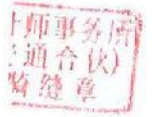 师事务所
通合伙)
骑缝章